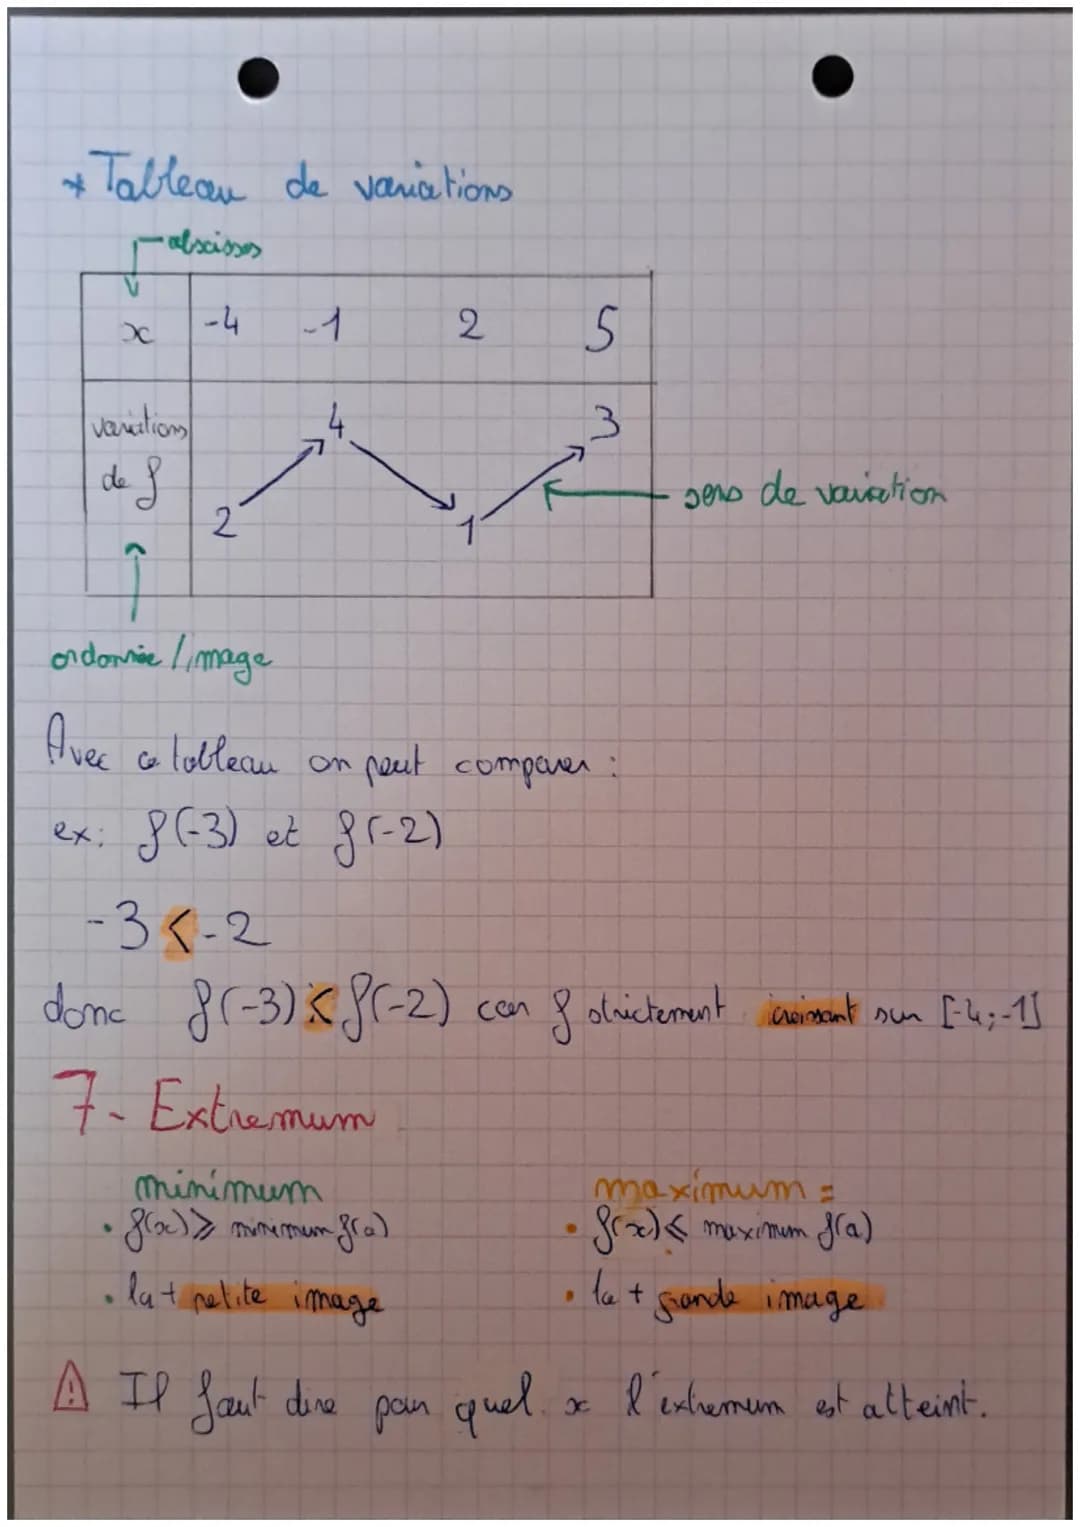 * Tableau de variations
abscisses
x -4 -1 2 5
variations de f
4 3
2 1
sens de variation
ordonnée / image
Avec ce tableau on peut comparer :
ex: f(-3) et f(-2)
-3 < -2
donc f(-3) < f(-2) car f strictement croissant sur [-4;-1]
7- Extremum
minimum
maximum =
• f(x) ⩾ minimum f(a)
• f(x) ⩽ maximum f(a)
• la + petite image
• la + grande image
⚠ Il faut dire par quel x l'extremum est atteint.